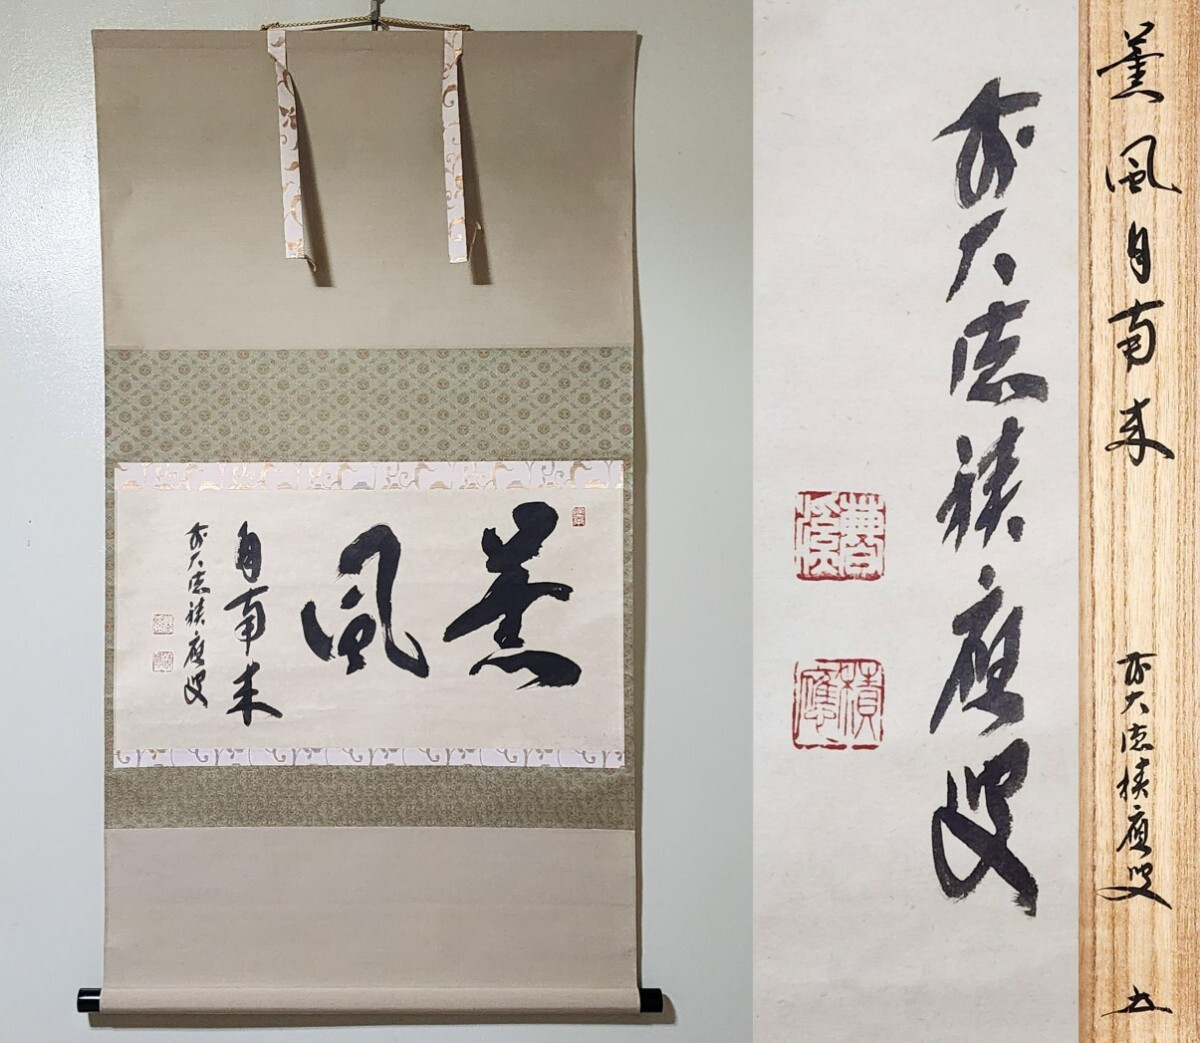 薫
風
自南来
前大徳積應叟
前大徳積應叟
積應
薫風自南来
前大徳積應叟